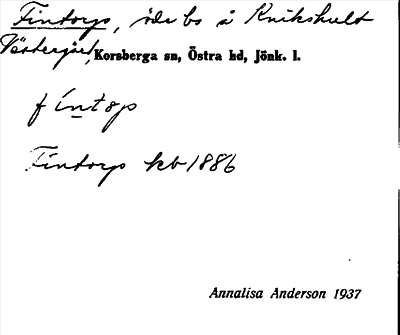 Fintorp, öde bs å Knikshult
Västergård,
Korsberga sn, Östra hd, Jönk. l.
fíntop
Fintorp kb 1886
Annalisa Anderson 1937